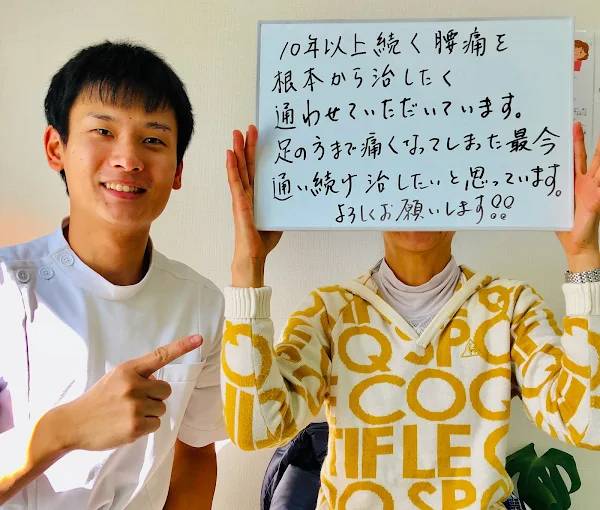 10年以上続く腰痛を
根本から治したく
通わせていただいています。
足の方まで痛くなってしまった最今
通い続け治したいと思っています。
よろしくお願いします!!
LE COQ SPO
COQ
TIFLE C
OQ SPO